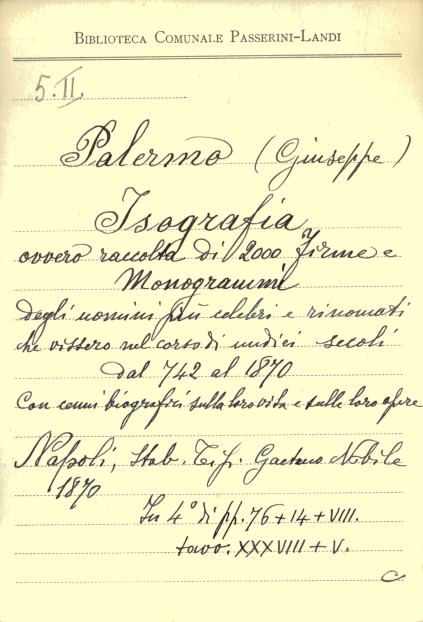 BIBLIOTECA COMUNALE PASSERINI-LANDI
5.II.
Palermo (Giuseppe)
Isografia
ovvero raccolta di 2000 Firme e
Monogrammi
degli uomini più celebri e rinomati
che vissero nel corso di undici secoli
dal 742 al 1870
Con cenni biografici sulla loro vita e sulle loro opere
Napoli, Stab. Tip. Gaetano Nobile
1870
In 4° di pp. 76+14+VIII.
tavv. XXXVIII+V.
C